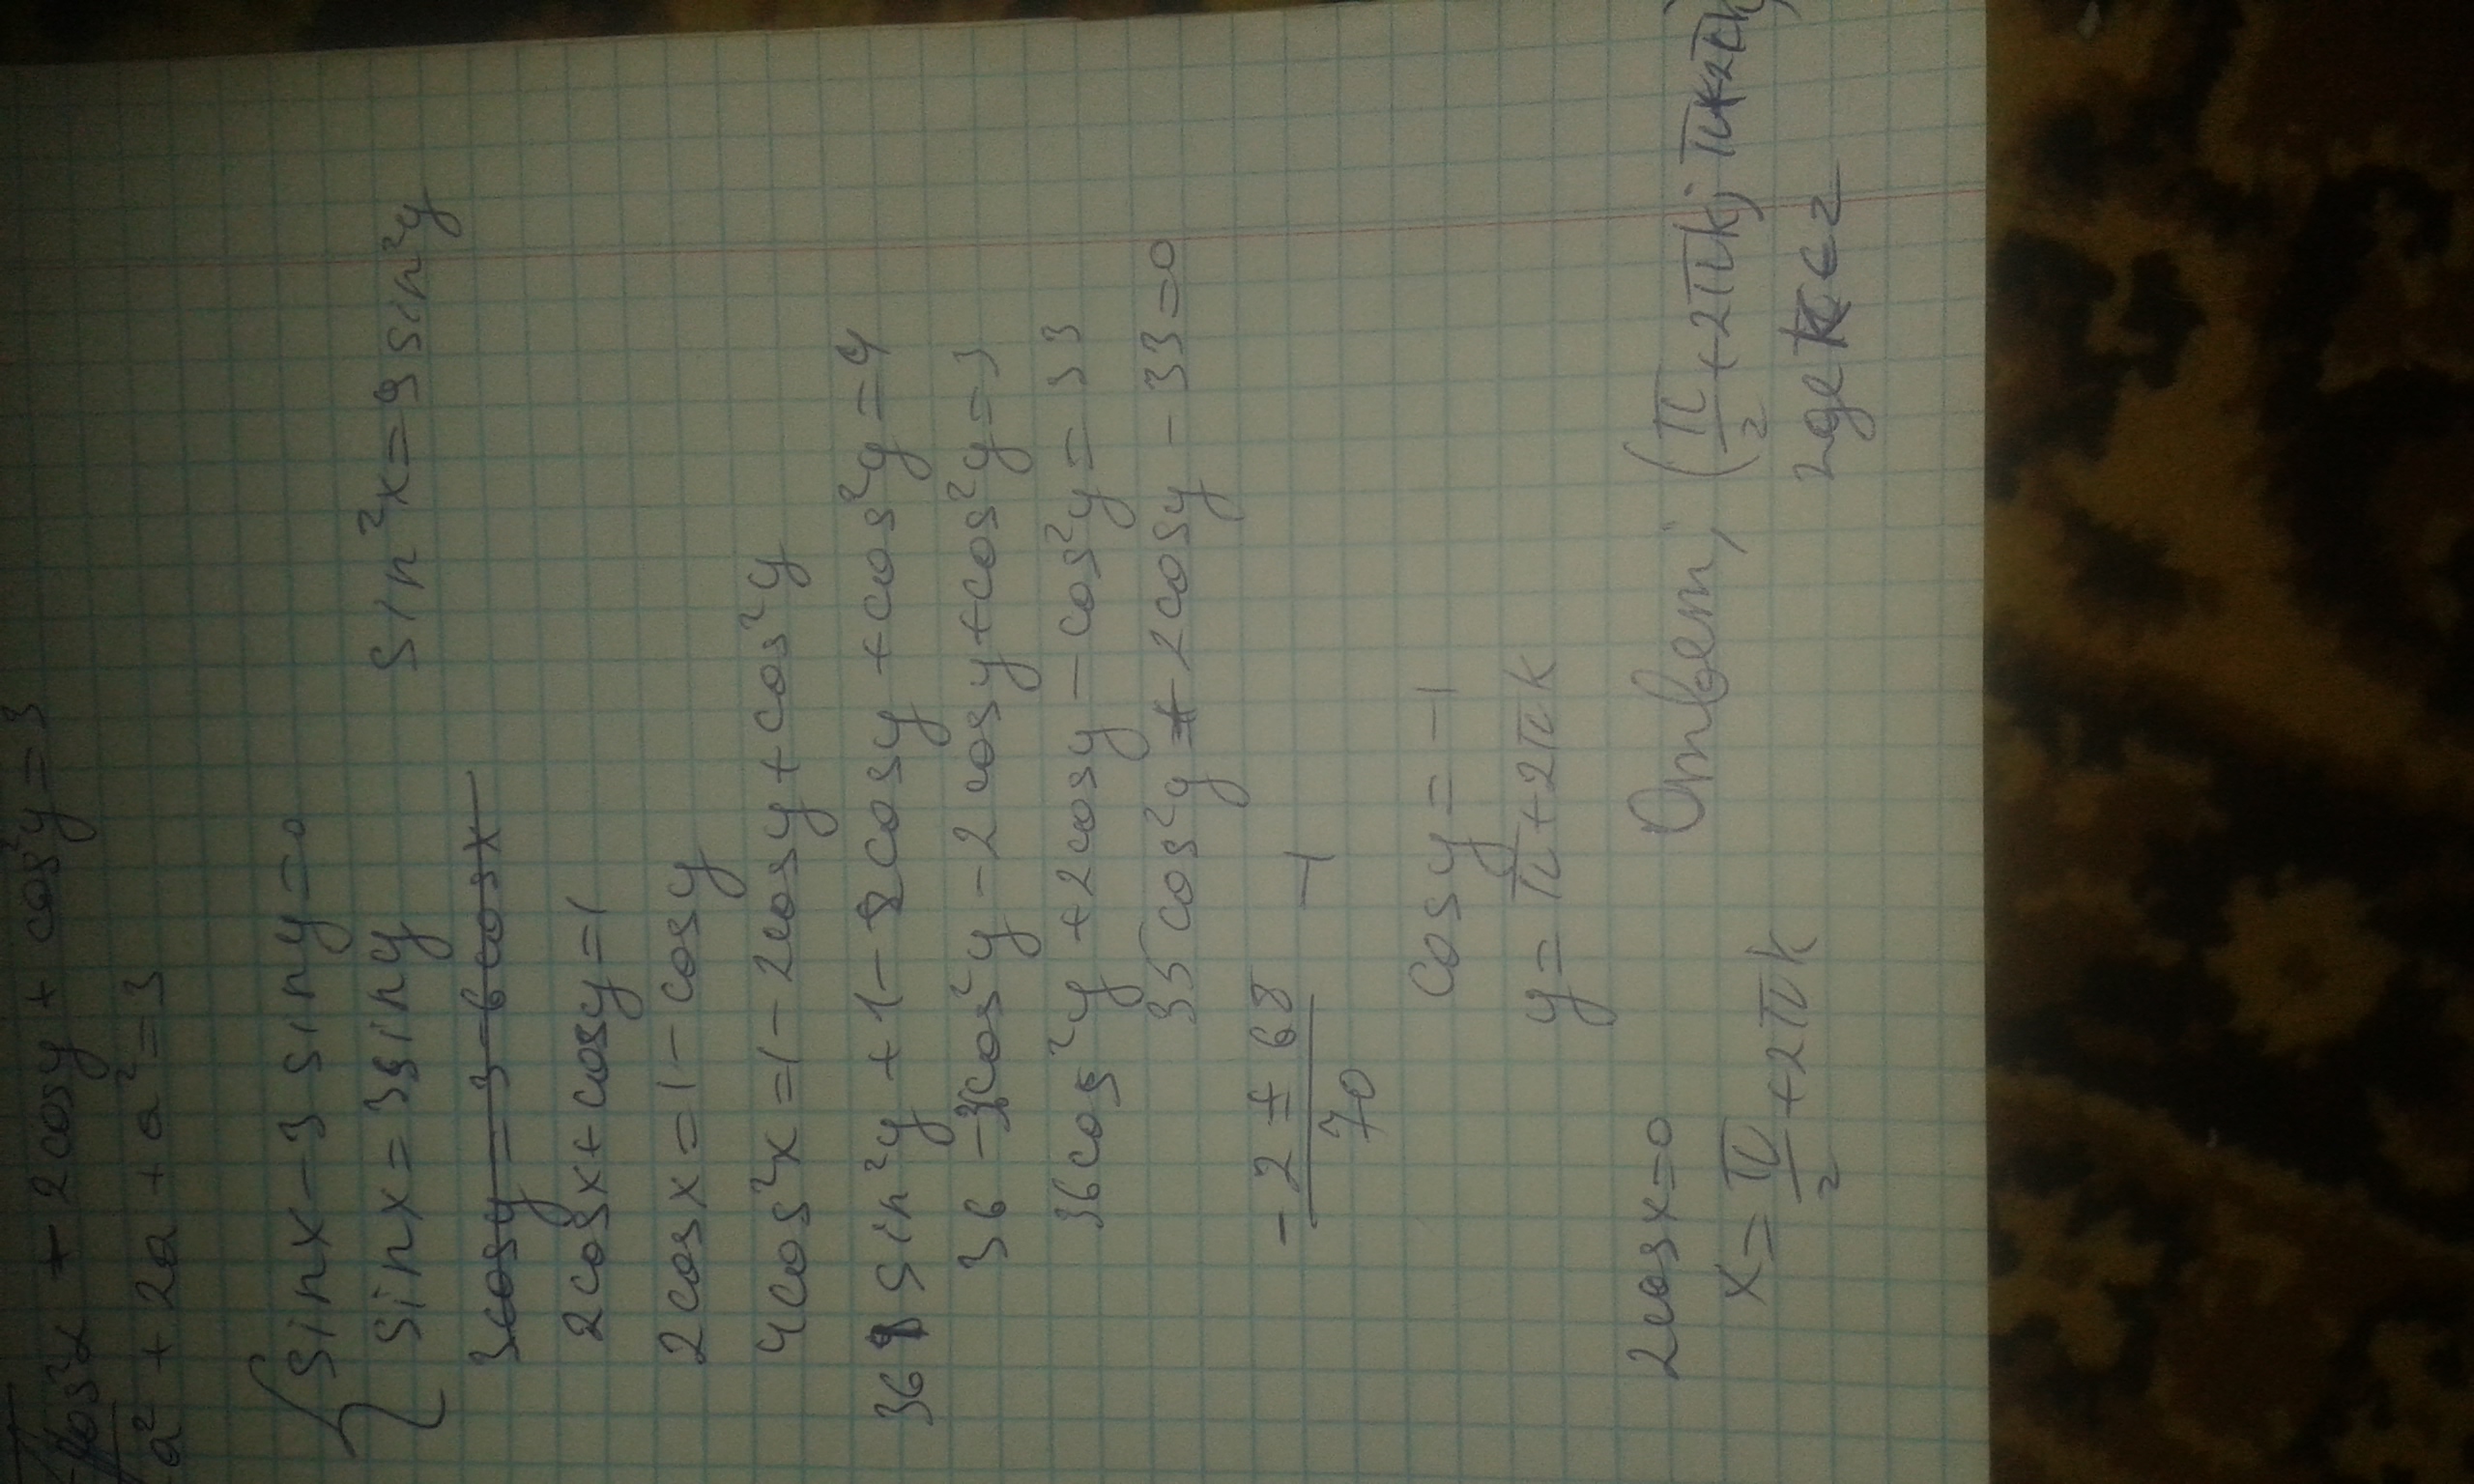 cos²x + 2cosy + cos²y = 3
a² + 2a + a² = 3
sinx - 3 siny = 0
sinx = 3siny    sin²x = 9 sin²y
3cosy = 3 - 6cosx
2cosx + cosy = 1
2cosx = 1 - cosy
4cos²x = 1 - 2cosy + cos²y
36 sin²y + 1 - 2cosy + cos²y = 4
36 - 36cos²y - 2cosy + cos²y = 3
36cos²y + 2cosy - cos²y = 33
35cos²y + 2cosy - 33 = 0
-2 ± 68    -1
70
cosy = -1
y = π + 2πk
2cosx = 0
x = π/2 + 2πk
Ответ: (π/2 + 2πk; π + 2πk)
где k ∈ z